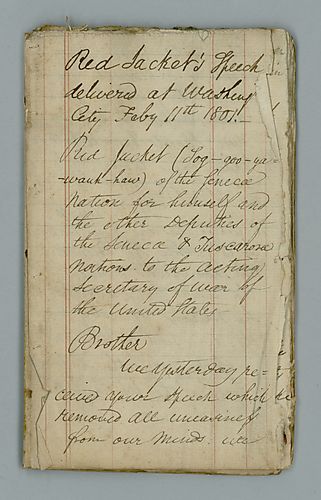 Red Jacket's Speech
delivered at Washing
City Feby 11th 1801.
Red Jacket (Sog-goo-ya-
-wauh-hau) of the Seneca
Nation for himself and
the other Deputies of
the Seneca & Tuscarora
Nations to the acting
Secretary of War of
the United States
Brother
We yesterday re-
ceived your speech which
removed all uneasiness
from our minds. We